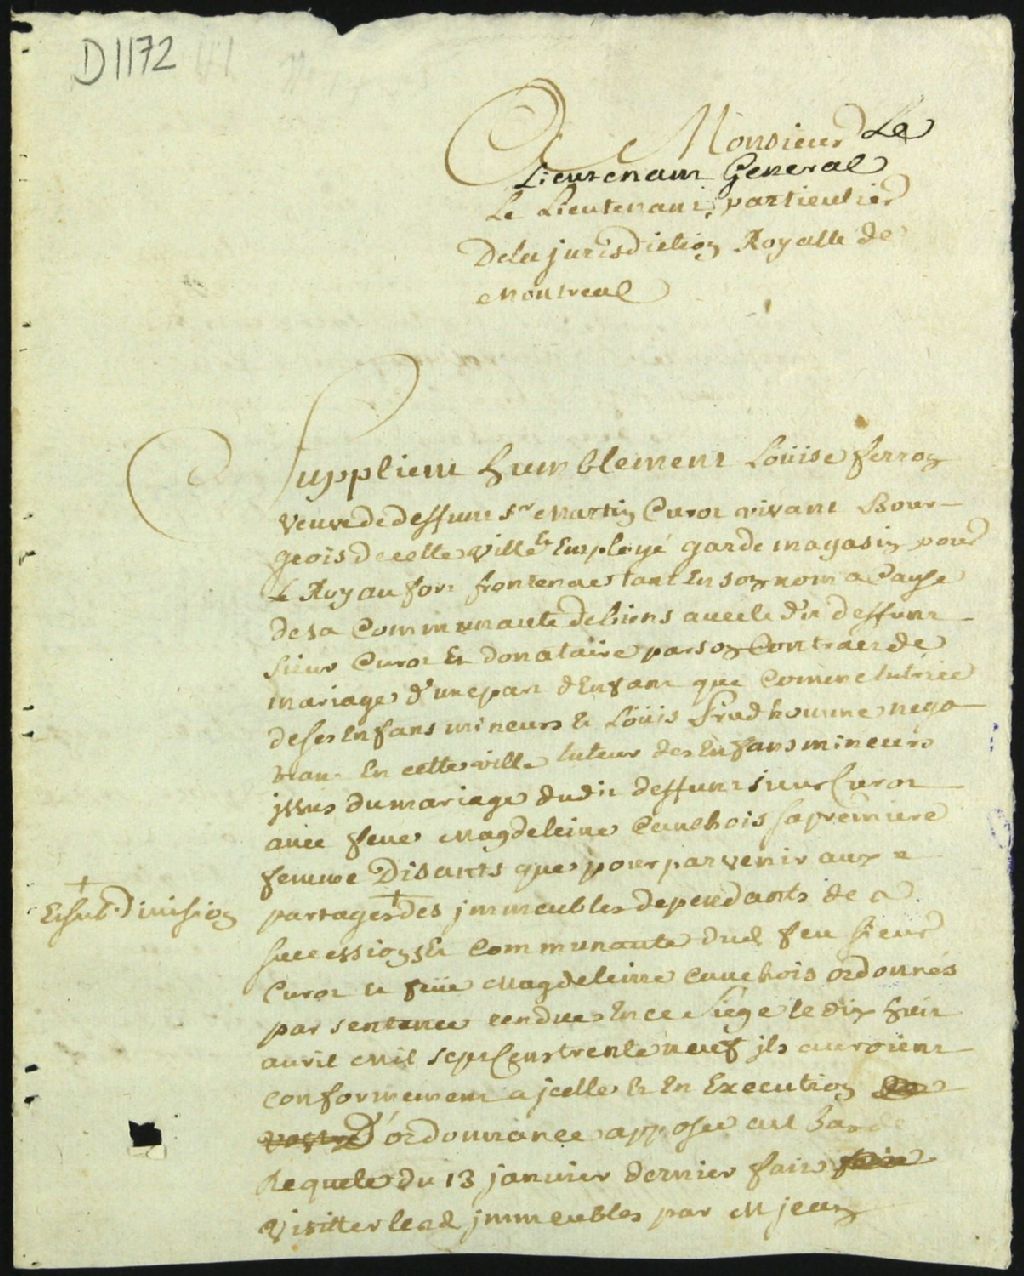 D1172
A Monsieur Le
Lieutenant General
Le Lieutenant particulier
De la jurisdiction Royalle de
Montreal
Supplient humblement Loüise ferron
veuve de deffunt Sr Martin Curot vivant Bour-
geois de cette ville & Employé garde magasin pour
Le Roy au fort frontenac tant En son nom a Cause
de sa Communauté de biens avec le dit deffunt
Sieur Curot Et donataire par son Contract de
mariage d'une part d'Enfant que Comme tutrice
de ses Enfans mineurs & Loüis Prudhomme nego-
tiant En cette ville tuteur des Enfans mineurs
jssus du mariage dudit deffunt sieur Curot
avec feue Magdeleine Cauchois sa premiere
femme Disants que pour parvenir aux
+ Et subdivision
partages + des jmmeubles dependants de
successions & Communauté dud feu sieur
Curot & feüe Magdeleine Cauchois ordonnés
par sentence rendue En ce Siege le dix huit
avril Mil sept Cens trente neuf jls auroient
conformement a jcelle & En Execution
D'ordonnance apposée au bas de
Requete du 13 janvier dernier fait
Visitter lesd jmmeubles par M jean